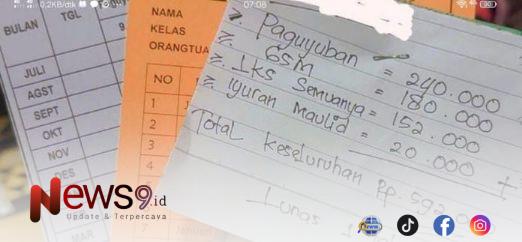 0,2KB/dtk
07:08
BULAN
TGL
JULI
AGST
SEPT
OKT
NOV
DES
MAR
NAMA
KELAS
ORANGTUA
NO
1
2
3
4
7
Paguyuban = 240.000
GSM = 180.000
LKS Semuanya = 152.000
Iyuran Maulid = 20.000 +
Total keseluruhan Rp. 592
Lunas
News9.id
Update & Terpercaya